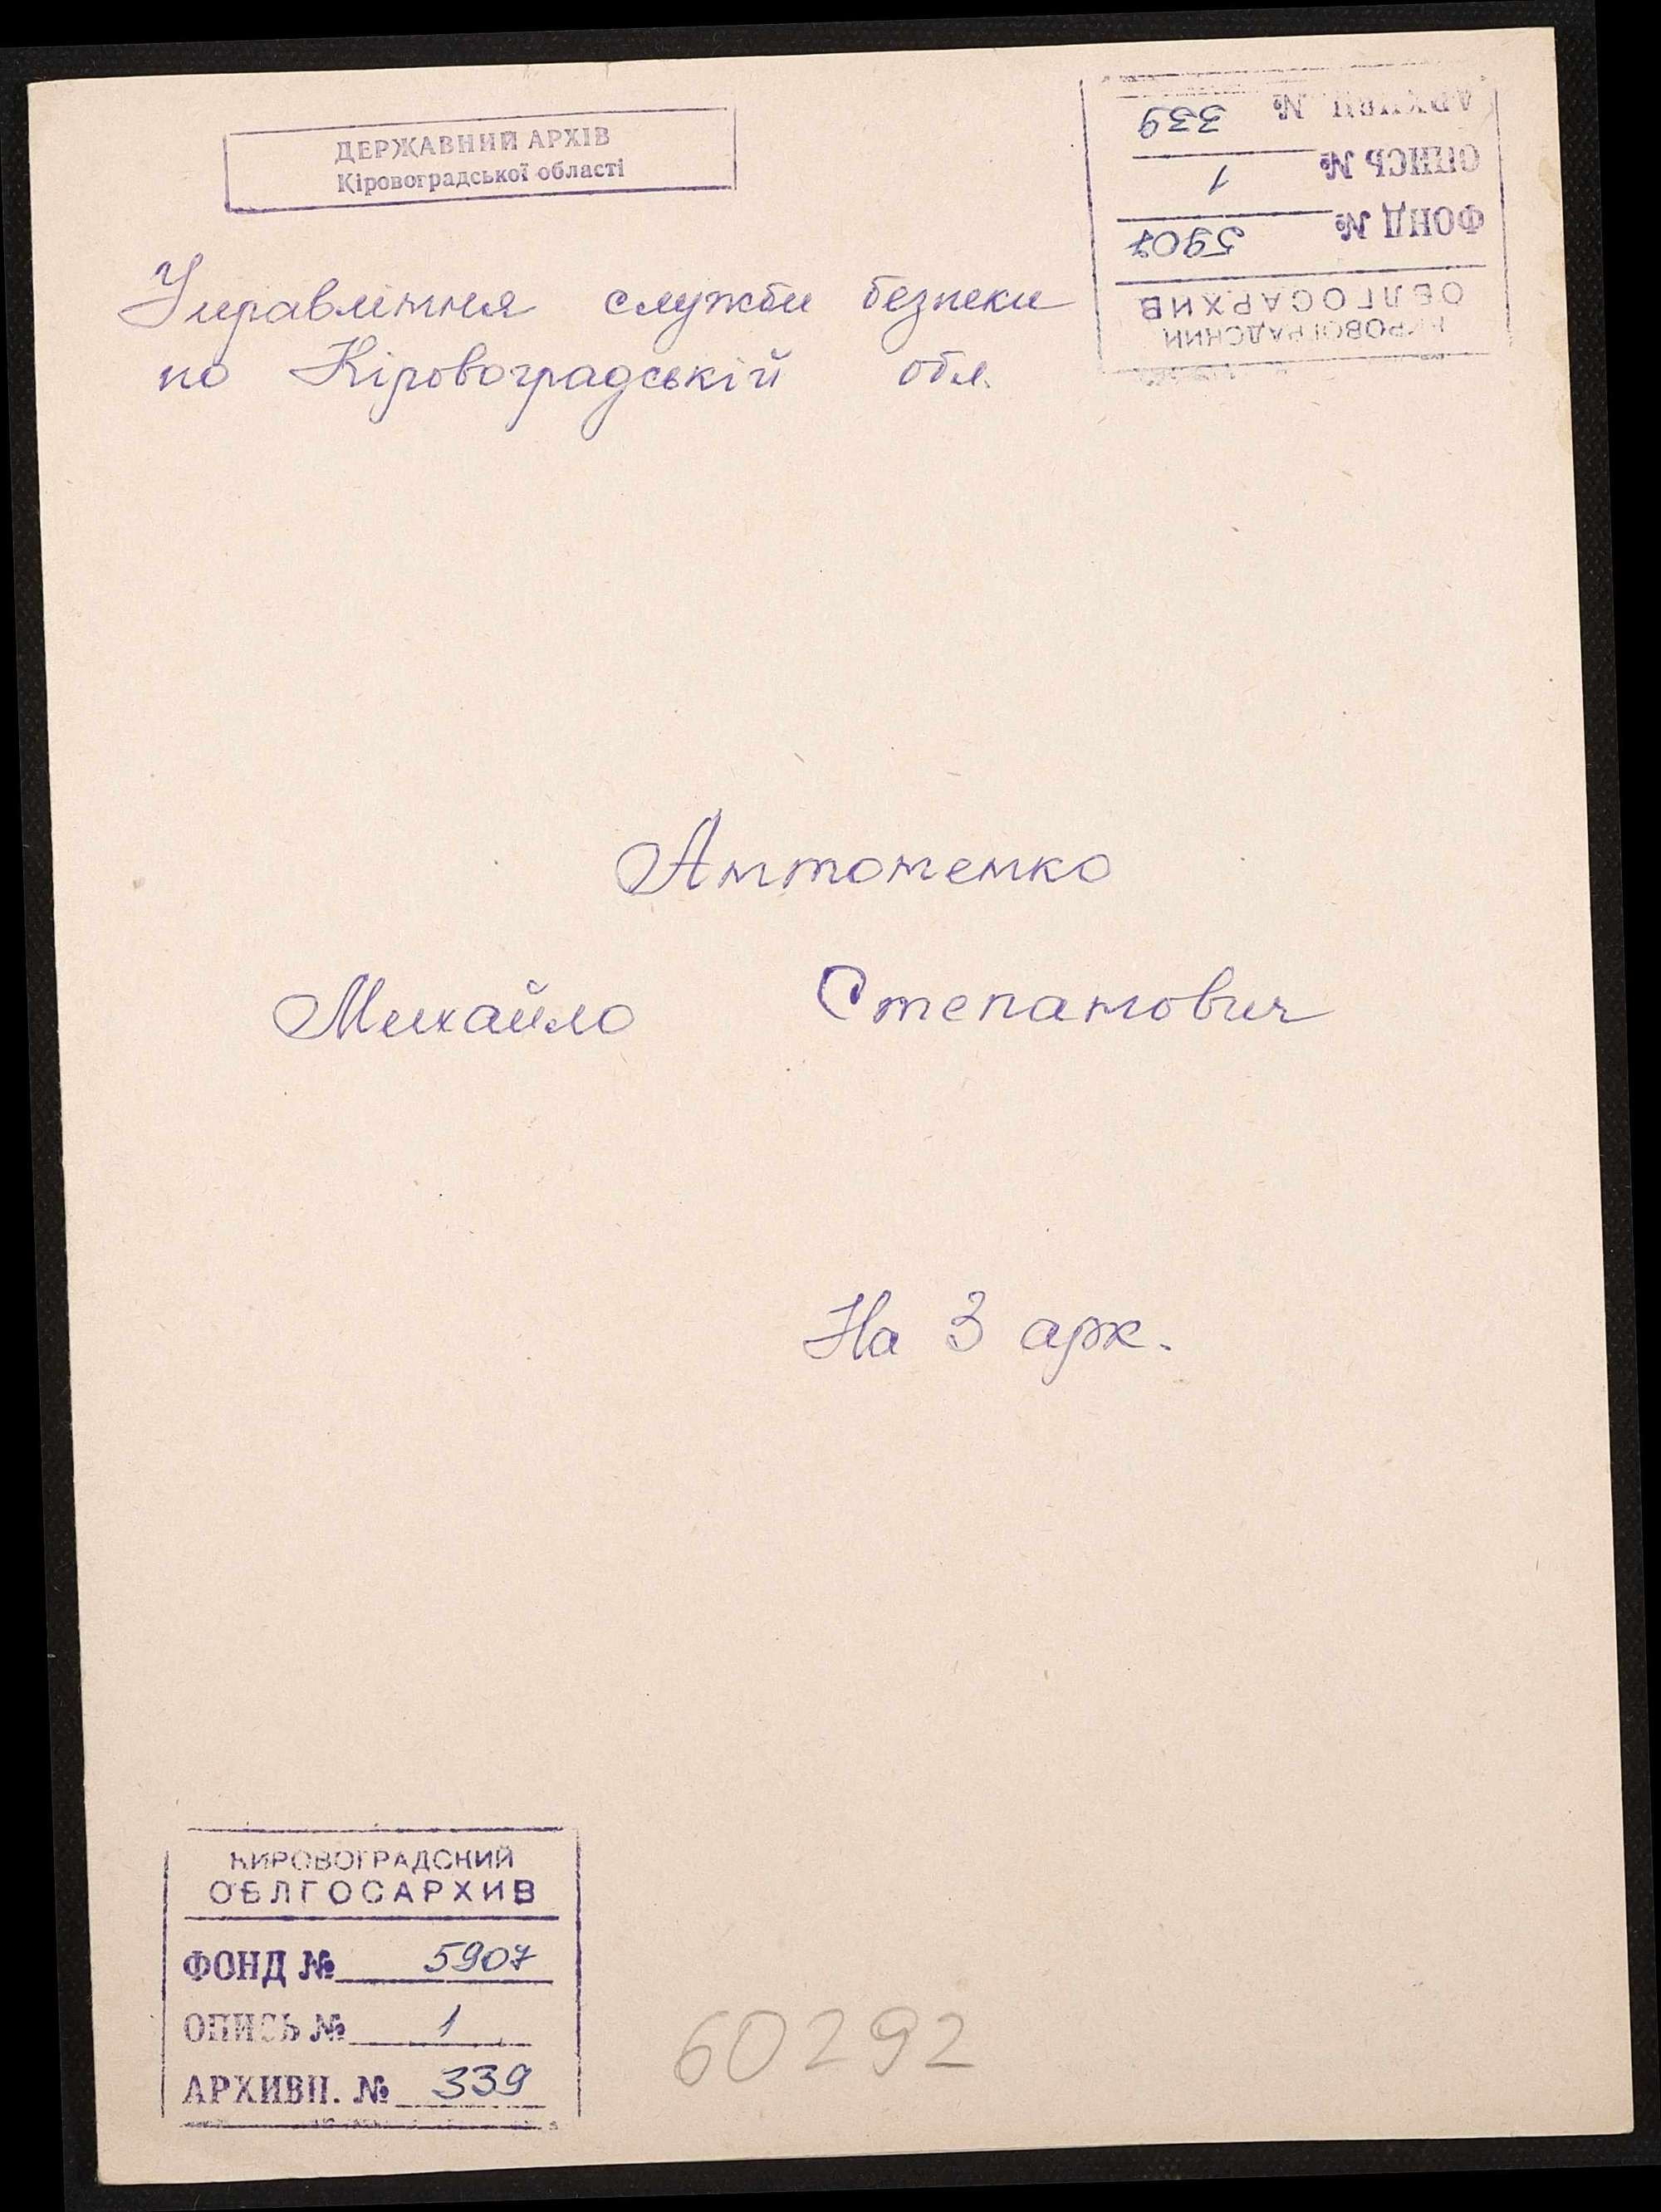 ДЕРЖАВНИЙ АРХІВ
Кіровоградської області
КИРОВОГРАДСКИЙ
ОБЛГОСАРХИВ
ФОНД № 5907
ОПИСЬ № 1
АРХИВН. № 339
Управління служби безпеки
по Кіровоградській обл.
Антоненко
Михайло Степанович
На 3 арк.
КИРОВОГРАДСКИЙ
ОБЛГОСАРХИВ
ФОНД № 5907
ОПИСЬ № 1
АРХИВН. № 339
60292